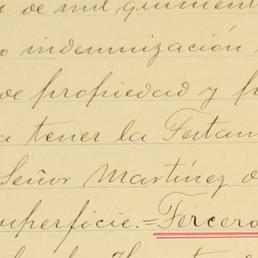 de mil quinient
o indemnización
de propiedad y p
a tener la Testam
Señor Martínez d
uperficie.=Tercero